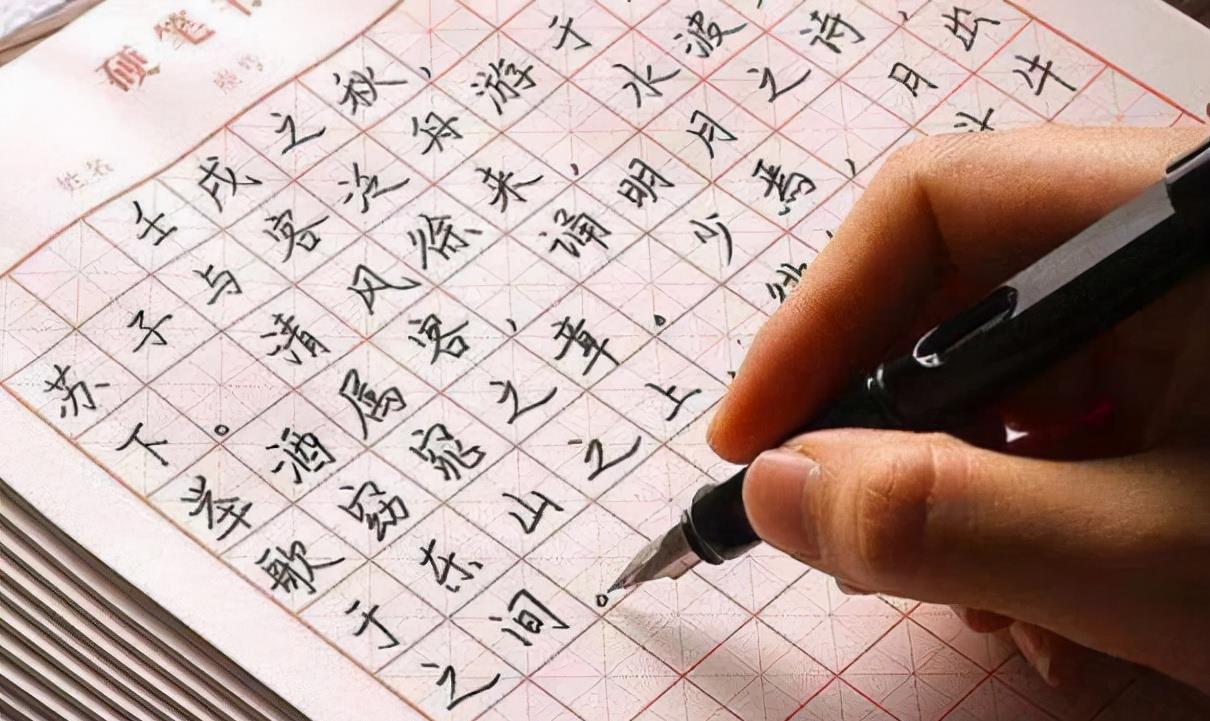 硬笔
姓名
壬戌之秋，
苏子与客泛舟游于
下。清风徐来，水波
举酒属客，诵明月之诗，
歌窈窕之章。少焉，月出
于东山之上，徘 斗牛
之间。